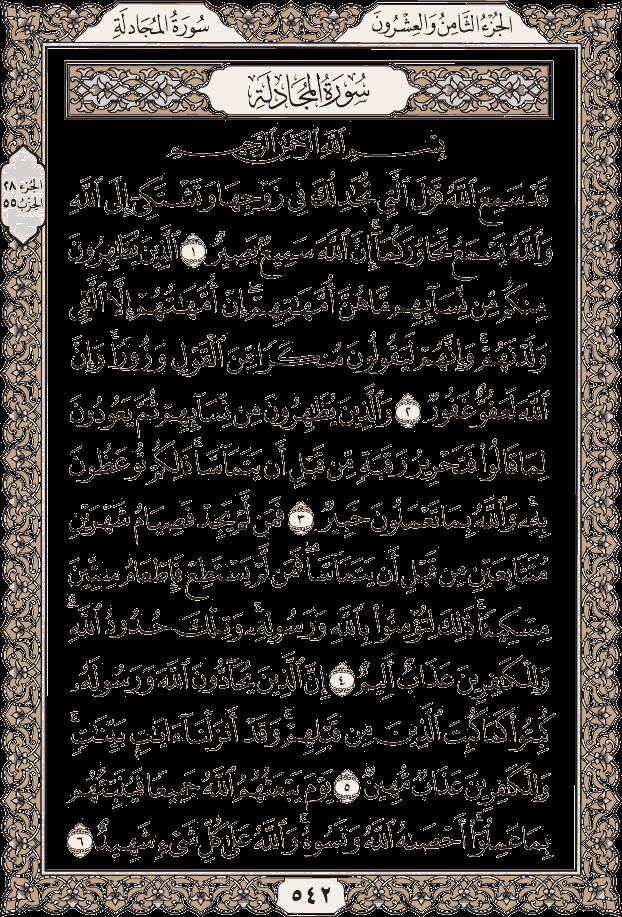 الجزء الثامن والعشرون
سورة المجادلة
سُورَةُ المُجَادلَة
الجزء ٢٨
الحزب ٥٥
بِسْمِ ٱللَّهِ ٱلرَّحْمَٰنِ ٱلرَّحِيمِ
قَدْ سَمِعَ ٱللَّهُ قَوْلَ ٱلَّتِى تُجَٰدِلُكَ فِى زَوْجِهَا وَتَشْتَكِىٓ إِلَى ٱللَّهِ
وَٱللَّهُ يَسْمَعُ تَحَاوُرَكُمَآ ۚ إِنَّ ٱللَّهَ سَمِيعٌۢ بَصِيرٌ ١ ٱلَّذِينَ يُظَٰهِرُونَ
مِنكُم مِّن نِّسَآئِهِم مَّا هُنَّ أُمَّهَٰتِهِمْ ۖ إِنْ أُمَّهَٰتُهُمْ إِلَّا ٱلَّٰٓـِٔى
وَلَدْنَهُمْ ۚ وَإِنَّهُمْ لَيَقُولُونَ مُنكَرًا مِّنَ ٱلْقَوْلِ وَزُورًا ۚ وَإِنَّ
ٱللَّهَ لَعَفُوٌّ غَفُورٌ ٢ وَٱلَّذِينَ يُظَٰهِرُونَ مِن نِّسَآئِهِمْ ثُمَّ يَعُودُونَ
لِمَا قَالُوا۟ فَتَحْرِيرُ رَقَبَةٍ مِّن قَبْلِ أَن يَتَمَآسَّا ۚ ذَٰلِكُمْ تُوعَظُونَ
بِهِۦ ۚ وَٱللَّهُ بِمَا تَعْمَلُونَ خَبِيرٌ ٣ فَمَن لَّمْ يَجِدْ فَصِيَامُ شَهْرَيْنِ
مُتَتَابِعَيْنِ مِن قَبْلِ أَن يَتَمَآسَّا ۖ فَمَن لَّمْ يَسْتَطِعْ فَإِطْعَامُ سِتِّينَ
مِسْكِينًا ۚ ذَٰلِكَ لِتُؤْمِنُوا۟ بِٱللَّهِ وَرَسُولِهِۦ ۚ وَتِلْكَ حُدُودُ ٱللَّهِ ۗ
وَلِلْكَٰفِرِينَ عَذَابٌ أَلِيمٌ ٤ إِنَّ ٱلَّذِينَ يُحَآدُّونَ ٱللَّهَ وَرَسُولَهُۥ
كُبِتُوا۟ كَمَا كُبِتَ ٱلَّذِينَ مِن قَبْلِهِمْ ۚ وَقَدْ أَنزَلْنَآ ءَايَٰتٍۭ بَيِّنَٰتٍ ۚ
وَلِلْكَٰفِرِينَ عَذَابٌ مُّهِينٌ ٥ يَوْمَ يَبْعَثُهُمُ ٱللَّهُ جَمِيعًا فَيُنَبِّئُهُم
بِمَا عَمِلُوٓا۟ ۚ أَحْصَىٰهُ ٱللَّهُ وَنَسُوهُ ۚ وَٱللَّهُ عَلَىٰ كُلِّ شَىْءٍ شَهِيدٌ ٦
٥٤٢